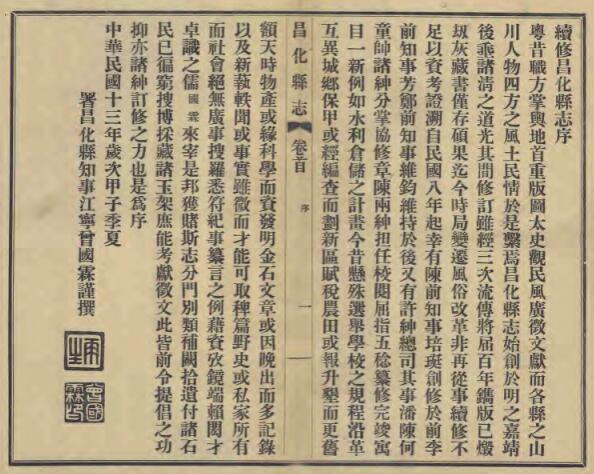 續修昌化縣志序
粵昔職方掌輿地首重版圖太史觀民風廣徵文獻而各縣之山
川人物四方之風土民情於是繫焉昌化縣志始創於明之嘉靖
後乘諸清之道光其間修訂雖經三次流傳將屆百年鐫版已燬
刼灰藏書僅存碩果迄今時局變遷風俗改革非再從事續修不
足以資考證溯自民國八年起幸有陳前知事培珽創修於前李
前知事芳鄭前知事維鈞維持於後又有許紳總司其事潘陳何
童帥諸紳分掌協修章陳兩紳担任校閱屈指五稔纂修完竣寓
目一新例如水利倉儲之計畫今昔懸殊選舉學校之規程沿革
互異城鄉保甲或經編查而劃新區賦稅農田或報升墾而更舊
昌化縣志
卷首
序
一
額天時物產或緣科學而資發明金石文章或因晚出而多記錄
以及新蓺軼聞或事實雖微而才能可取稗篇野史或私家所有
而社會絕無廣事搜羅悉符紀事纂言之例藉資攷鏡端賴閎才
卓識之儒國霖來宰是邦獲賭斯志分門別類補闕拾遺付諸石
民已徧窮搜博採藏諸玉架庶能考獻徵文此皆前令提倡之功
抑亦諸紳訂修之力也是為序
中華民國十三年歲次甲子季夏
署昌化縣知事江寧曾國霖謹撰
曾國霖印